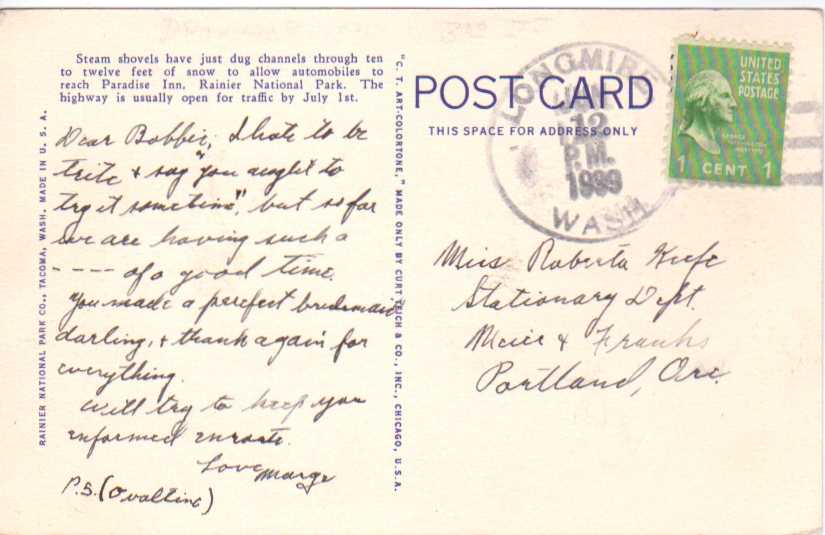 Steam shovels have just dug channels through ten
to twelve feet of snow to allow automobiles to
reach Paradise Inn, Rainier National Park. The
highway is usually open for traffic by July 1st.
Dear Bobbie; I hate to be
trite & say "you aught to
try it sometime", but so far
we are having such a
---- of a good time.
You made a perefect bridesmaid
darling, & thank again for
everything.
Will try to keep you
informed enroute.
Love Marge
P.S. (Ovaltine)
RAINIER NATIONAL PARK CO., TACOMA, WASH. MADE IN U. S. A.
"C. T. ART-COLORTONE," MADE ONLY BY CURT TEICH & CO., INC., CHICAGO, U.S.A.
POST CARD
THIS SPACE FOR ADDRESS ONLY
LONGMIRE
JUN
12
P.M.
1939
WASH.
UNITED
STATES
POSTAGE
1 CENT 1
Miss Roberta Keefe
Stationary Dept.
Meier & Franks
Portland, Ore.